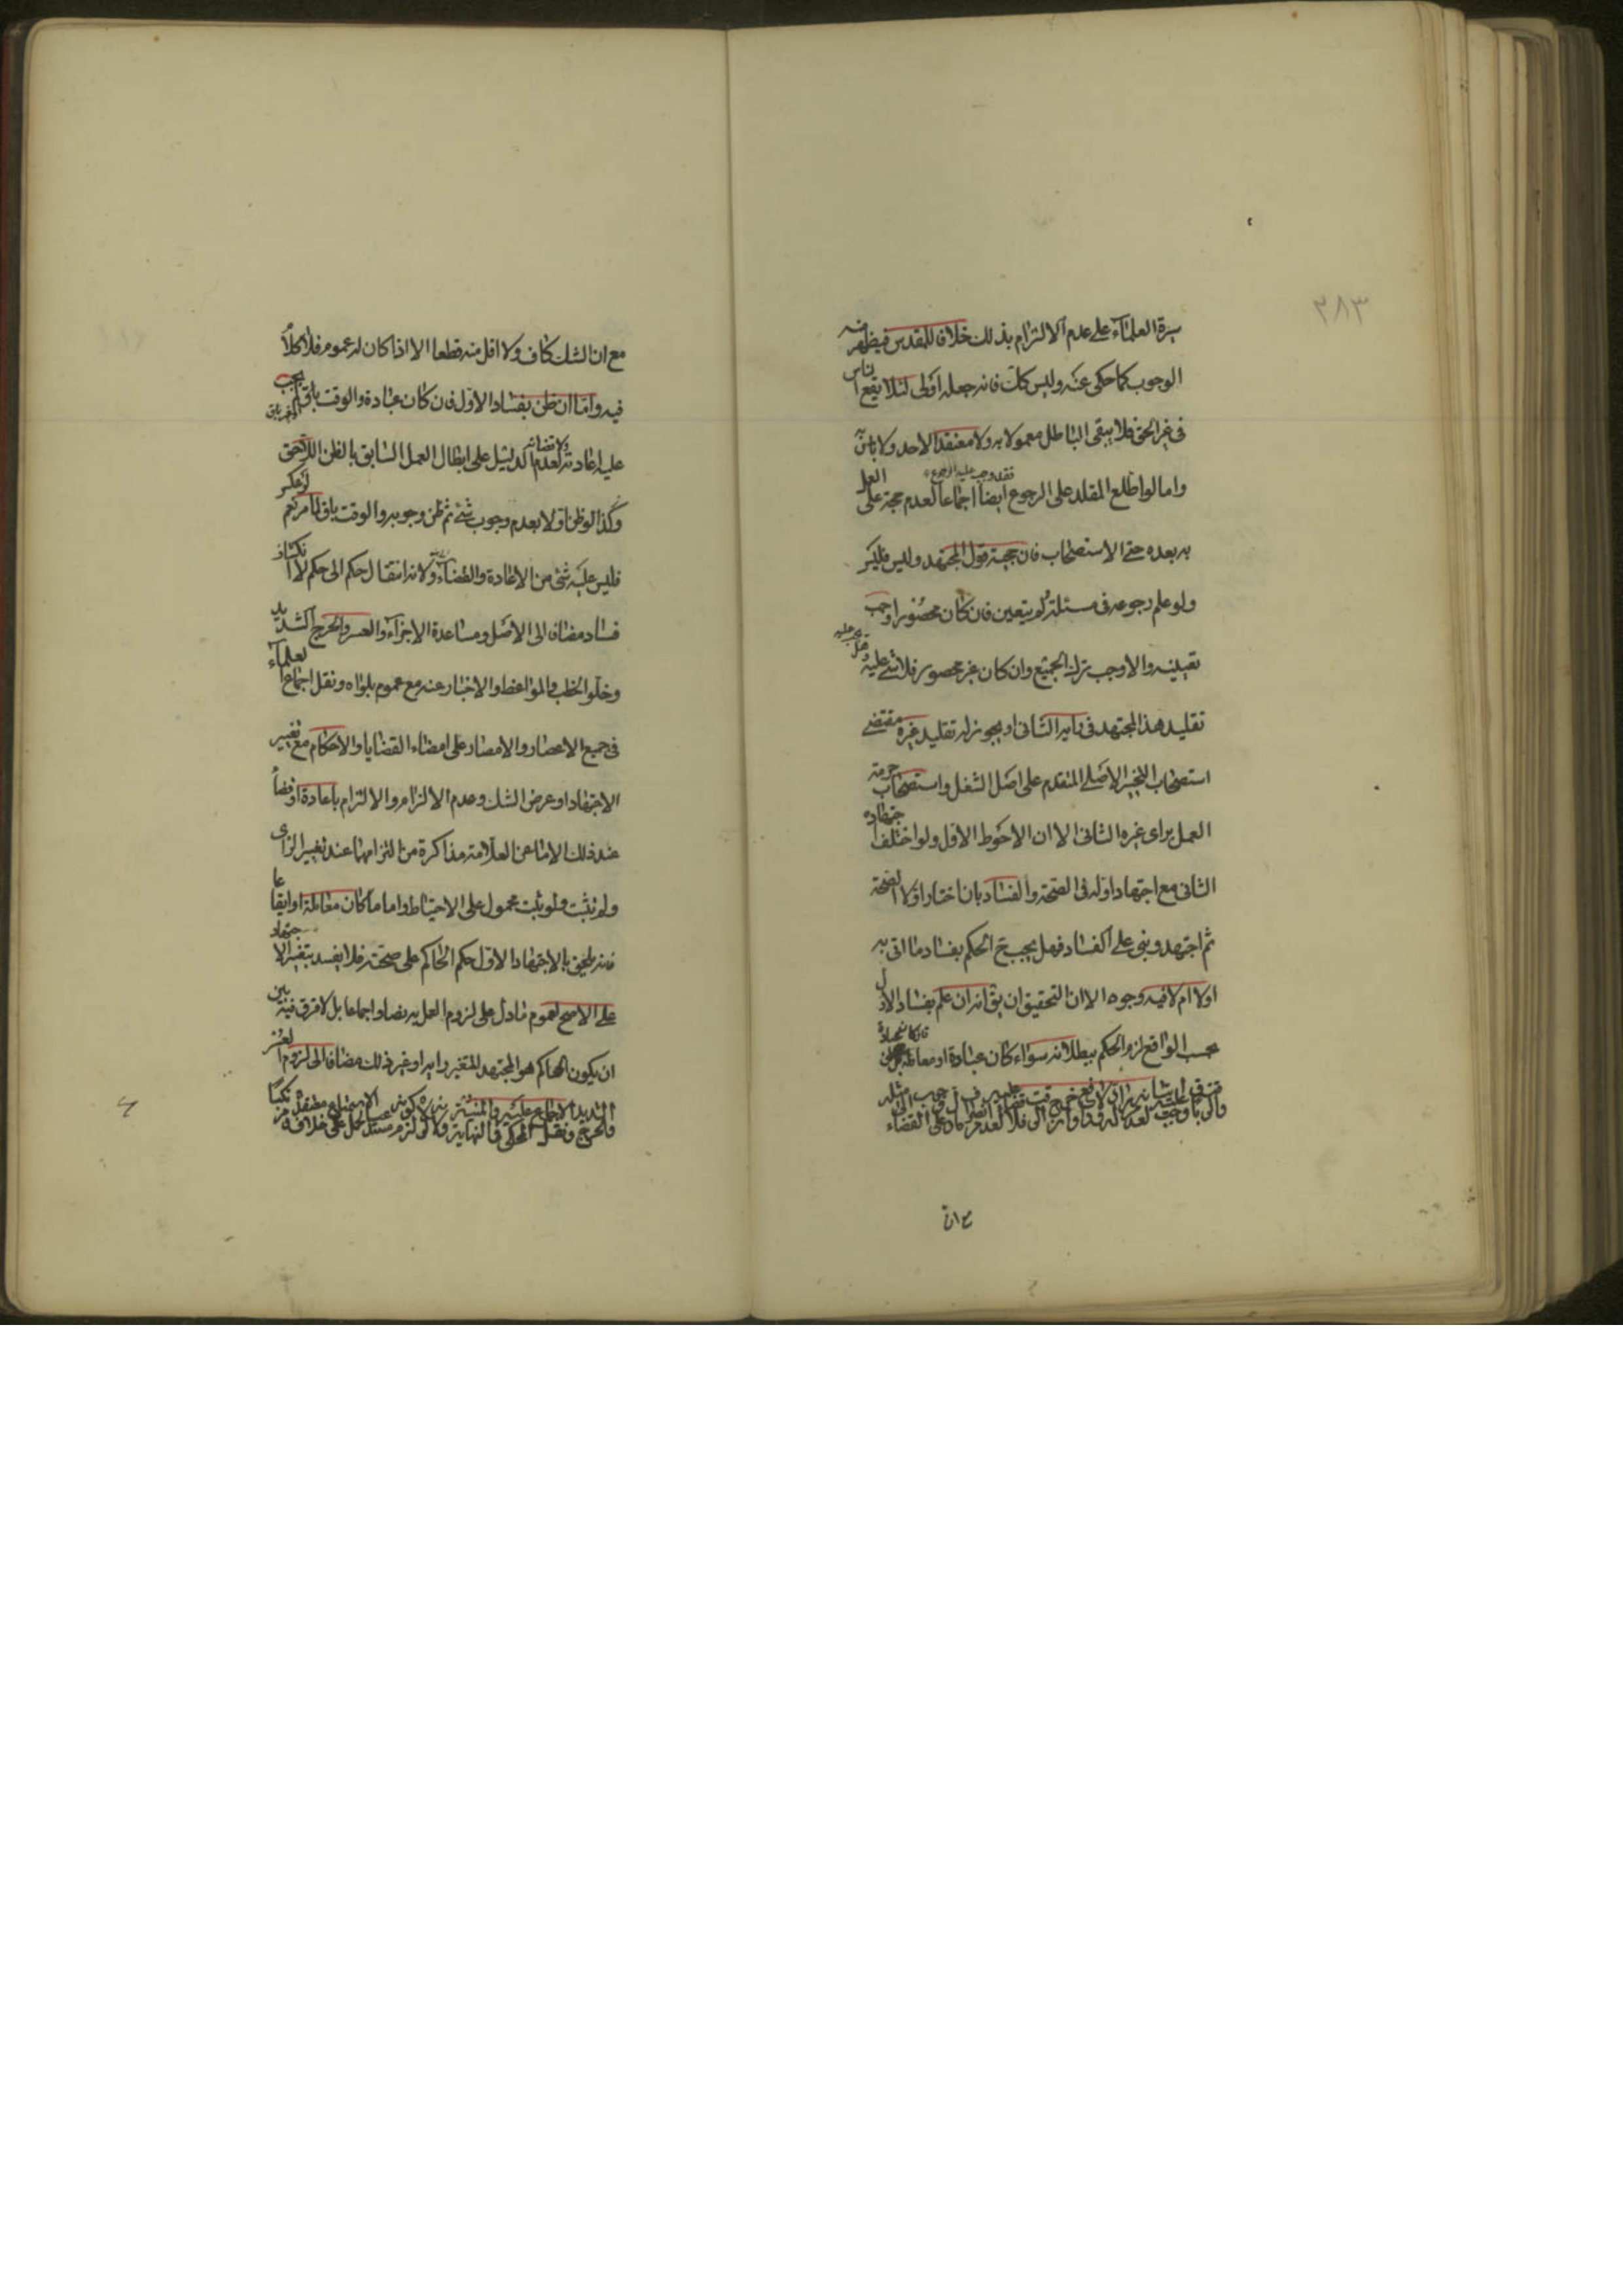 ٢٨٣
سيرة العلماء على عدم الالتزام بذلك خلافا للمقدس فيظهر منه
الوجوب كما حكى عنه وليس كك فانه جعله اولى لئلا يقع الناس
فى غير الحق فلا يبقى الباطل معمولا به ولا معتقدا لاحد ولا باس به
واما لو اطلع المقلد على الرجوع فقد وجب عليه الرجوع ايضا اجماعا لعدم حجة على العمل
به بعده حتى الاستصحاب فان حجيته قول المجتهد وليس فليس
ولو علم رجوعه فى مسئلة ولم يتعين فان كان محصورا وجب
تعيينه والا وجب ترك الجميع وان كان غير محصور فلا شئ عليه وهل يجب عليه
تقليد هذا المجتهد فى رايه الثانى او يجوز له تقليد غيره مقتضى
استصحاب التخيير الاصلى المتقدم على اصل الشغل واستصحاب حرمة
العمل براى غيره الثانى الا ان الاحوط الاول ولو اختلف اجتهاده
الثانى مع اجتهاد اوله فى الصحة والفساد بان اختار اولا الصحة
ثم اجتهد وبنى على الفساد فهل يجب ح الحكم بفساد ما اتى به
اولا ام لا فيه وجوه الا ان التحقيق ان يق انه ان علم بفساد الاول
بحسب الواقع لزم الحكم ببطلانه سواء كان عبادة او معاملة
مع ان
مع ان الشك كاف ولا اقل منه قطعا الا اذا كان له عموم فلا كلام
فيه واما ان ظن بفساد الاول فان كان عبادة والوقت باق لم يجب
عليه اعادته ولا قضائه لعدم الدليل على ابطال العمل السابق بالظن اللاحق
وكذا لو ظن اولا بعدم وجوب شئ ثم ظن وجوبه والوقت باق اما لو عكس
فليس عليه شئ من الاعادة والقضاء ولانه انتقال حكم الى حكم لا انكشاف
فساد مضافا الى الاصل ومساعدة الاجزاء والعسر والحرج الشديد
وخلو الخطب والمواعظ والاخبار عنه مع عموم بلواه ونقل اجماع العلماء
فى جميع الاعصار والامصار على امضاء القضايا والاحكام مع تغيير
الاجتهاد او عرض الشك وعدم الالزام والالتزام باعادة او قضاء
عند ذلك الا ما عن العلامة مذاكرة من التزامهما عند تغيير الراى
ولم يثبت ولو ثبت محمول على الاحتياط واما ما كان معاملة او ايقاعا
فانه يلحق بالاجتهاد الاول حكم الحاكم على صحته فلا يفسد بتغيير الاجتهاد
على الاصح لعموم ما دل على لزوم العمل به نصا واجماعا بل لا فرق فيه بين
ان يكون الحاكم هو المجتهد المتغير رايه او غيره ذلك مضافا الى لزوم العسر